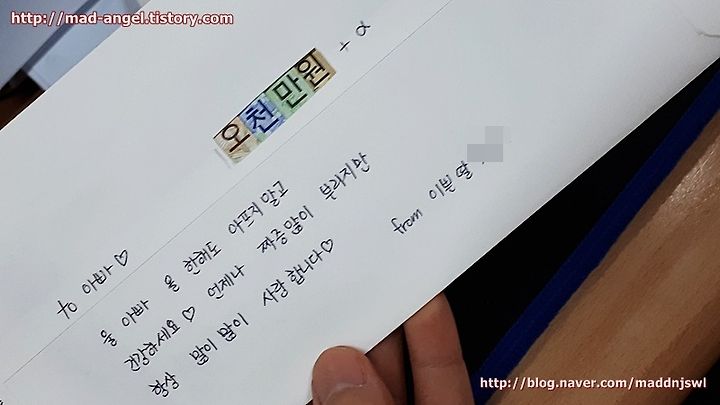 http://mad-angel.tistory.com
오천만원 + α
to 아빠♡
울 아빠 올 한해도 아프지 말고
건강하세요♡ 언제나 짜증많이 부리지만
항상 많이 많이 사랑합니다♡
from 이쁜 딸
http://blog.naver.com/maddnjswl